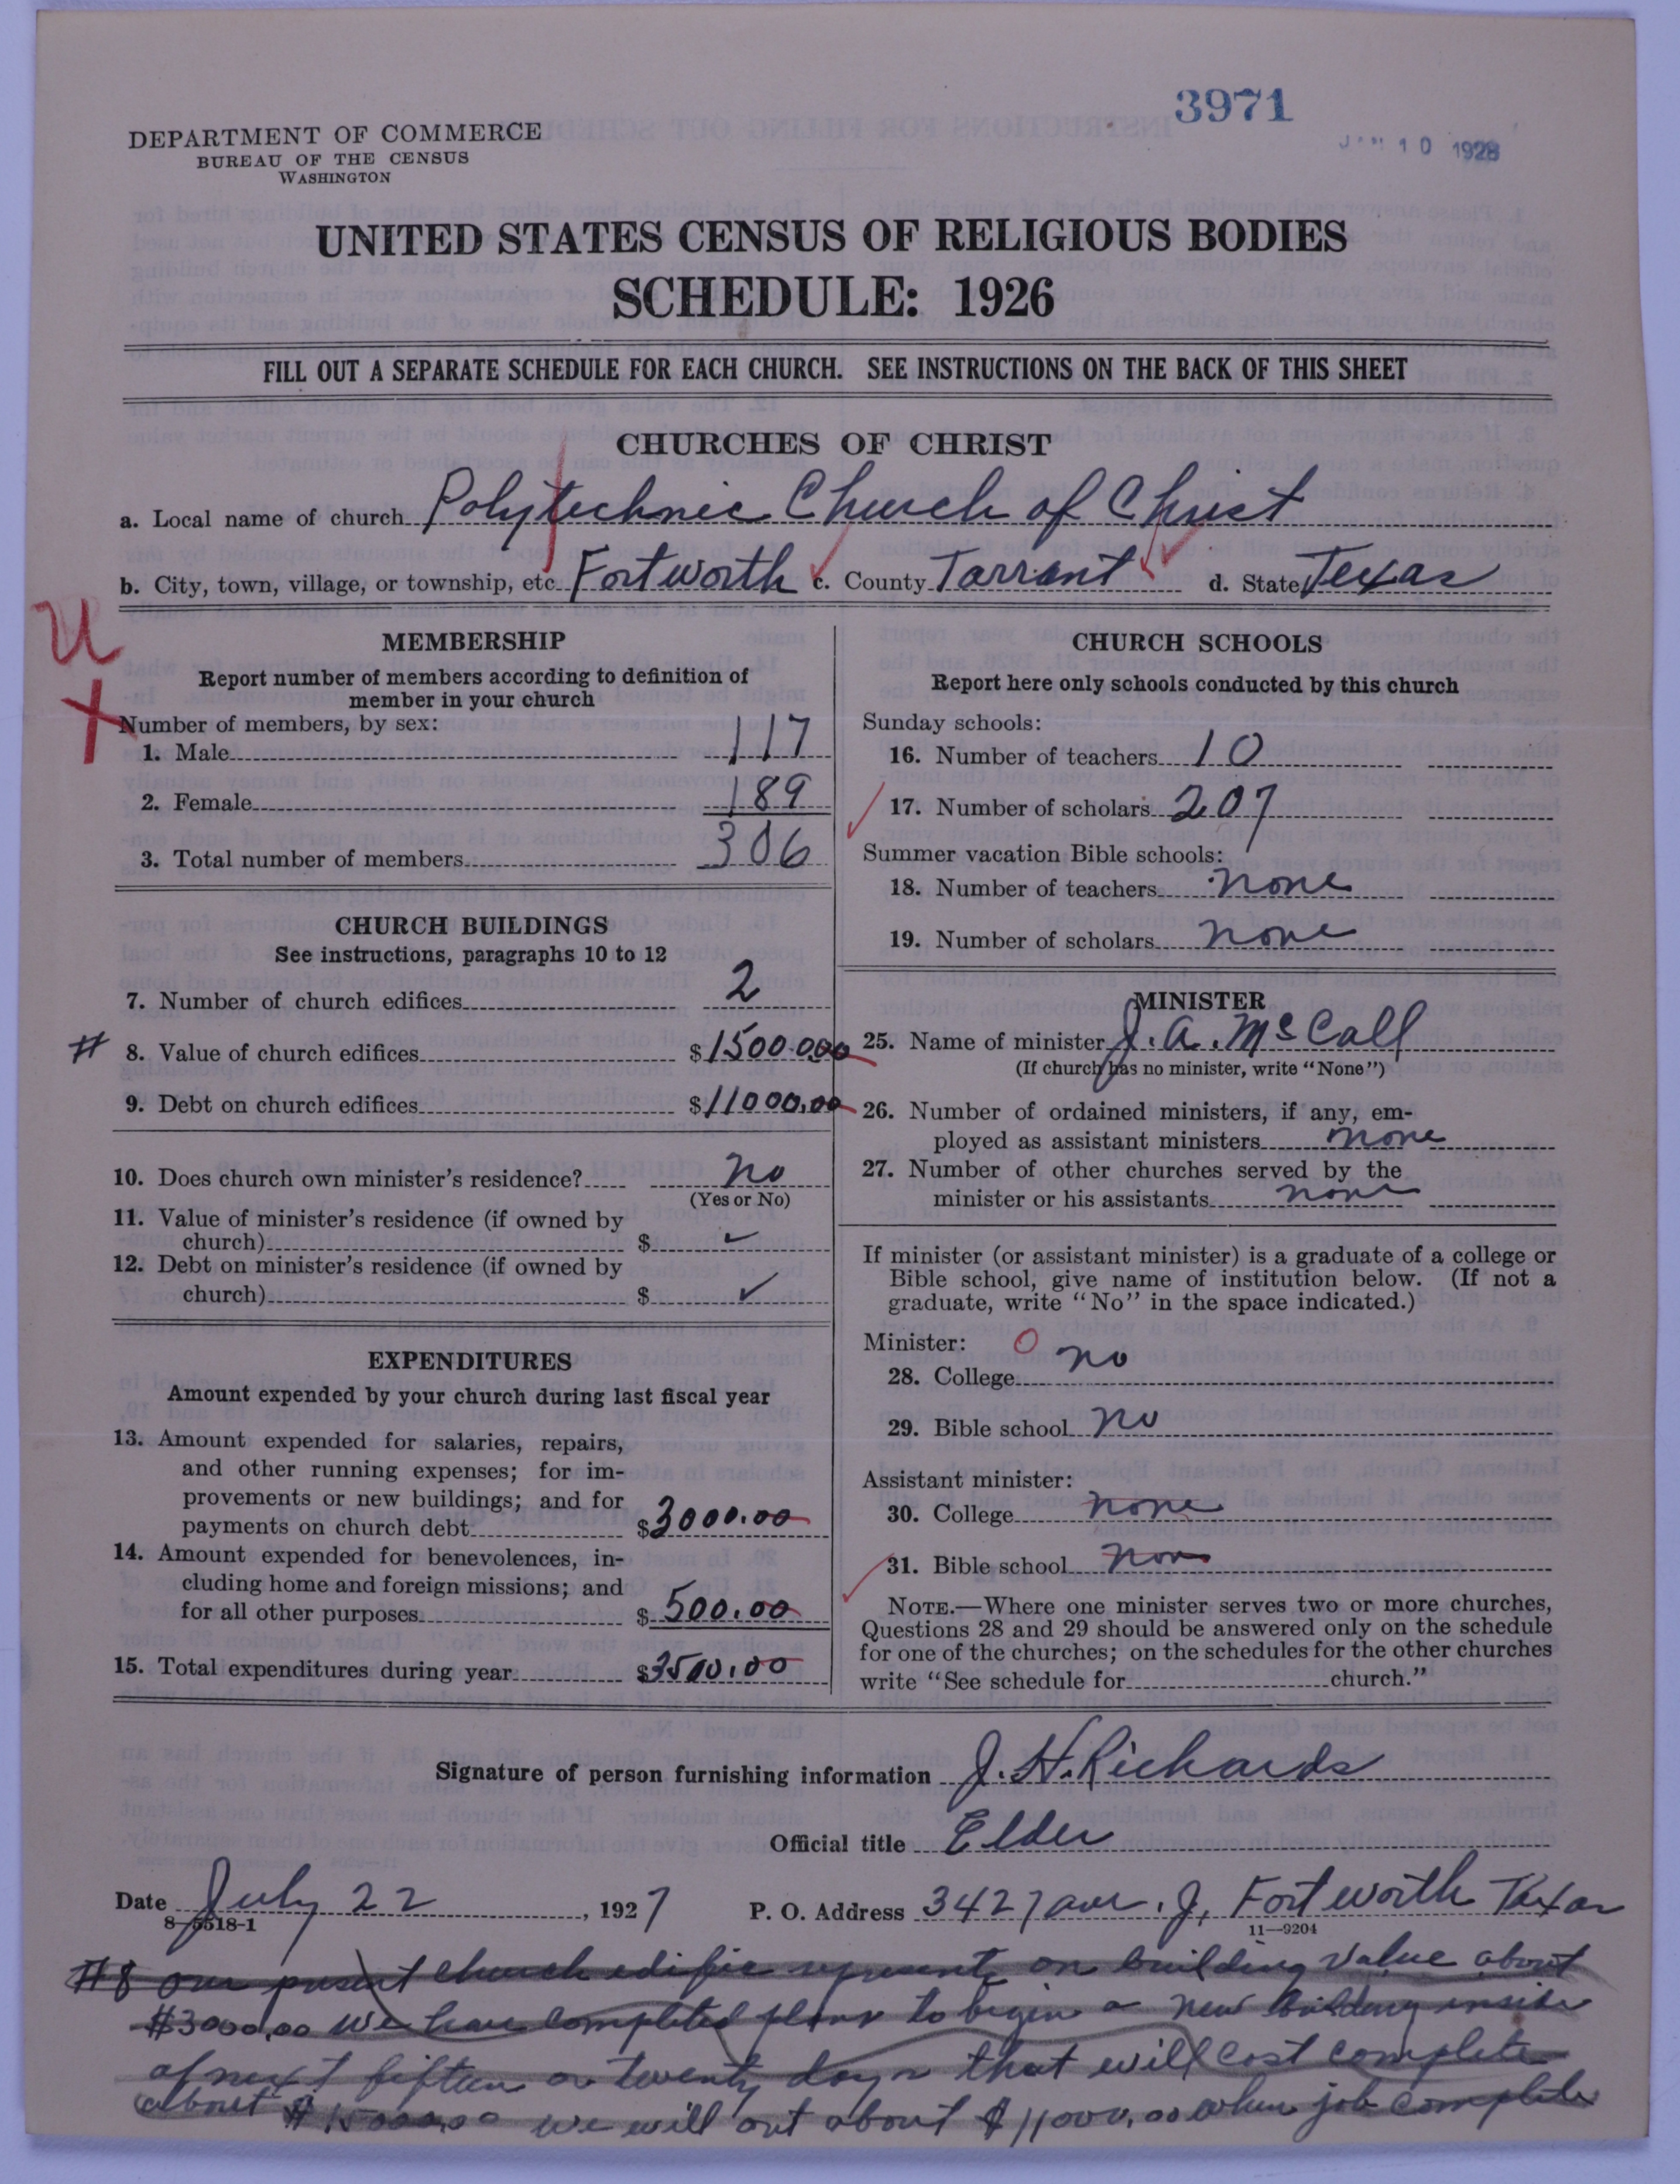 3971
JAN 10 1928
DEPARTMENT OF COMMERCE
BUREAU OF THE CENSUS
WASHINGTON
UNITED STATES CENSUS OF RELIGIOUS BODIES
SCHEDULE: 1926
FILL OUT A SEPARATE SCHEDULE FOR EACH CHURCH. SEE INSTRUCTIONS ON THE BACK OF THIS SHEET
CHURCHES OF CHRIST
a. Local name of church Polytechnic Church of Christ
b. City, town, village, or township, etc. Fort worth c. County Tarrant d. State Texas
U
X
MEMBERSHIP
Report number of members according to definition of
member in your church
Number of members, by sex:
1. Male 117
2. Female 189
3. Total number of members 306
CHURCH BUILDINGS
See instructions, paragraphs 10 to 12
7. Number of church edifices 2
# 8. Value of church edifices $15000.00
9. Debt on church edifices $11000.00
10. Does church own minister's residence? no
(Yes or No)
11. Value of minister's residence (if owned by
church) $ ✓
12. Debt on minister's residence (if owned by
church) $ ✓
EXPENDITURES
Amount expended by your church during last fiscal year
13. Amount expended for salaries, repairs,
and other running expenses; for im-
provements or new buildings; and for
payments on church debt $3000.00
14. Amount expended for benevolences, in-
cluding home and foreign missions; and
for all other purposes $500.00
15. Total expenditures during year $3500.00
CHURCH SCHOOLS
Report here only schools conducted by this church
Sunday schools:
16. Number of teachers 10
17. Number of scholars 207
Summer vacation Bible schools:
18. Number of teachers none
19. Number of scholars none
MINISTER
25. Name of minister J. A. McCall
(If church has no minister, write "None")
26. Number of ordained ministers, if any, em-
ployed as assistant ministers none
27. Number of other churches served by the
minister or his assistants none
If minister (or assistant minister) is a graduate of a college or
Bible school, give name of institution below. (If not a
graduate, write "No" in the space indicated.)
Minister: O
28. College no
29. Bible school no
Assistant minister:
30. College none
31. Bible school non
NOTE.—Where one minister serves two or more churches,
Questions 28 and 29 should be answered only on the schedule
for one of the churches; on the schedules for the other churches
write "See schedule for church."
Signature of person furnishing information J. H. Richards
Official title Elder
Date July 22, 1927 P. O. Address 3427 ave. J, Fort worth Texas
8-5518-1 11—9204
#8 our present church edifice represents on building value about
$3000.00 we have completed plans to begin a new building inside
of next fifteen or twenty days that will cost complete
about $15000.00 we will out about $11000.00 when job complete